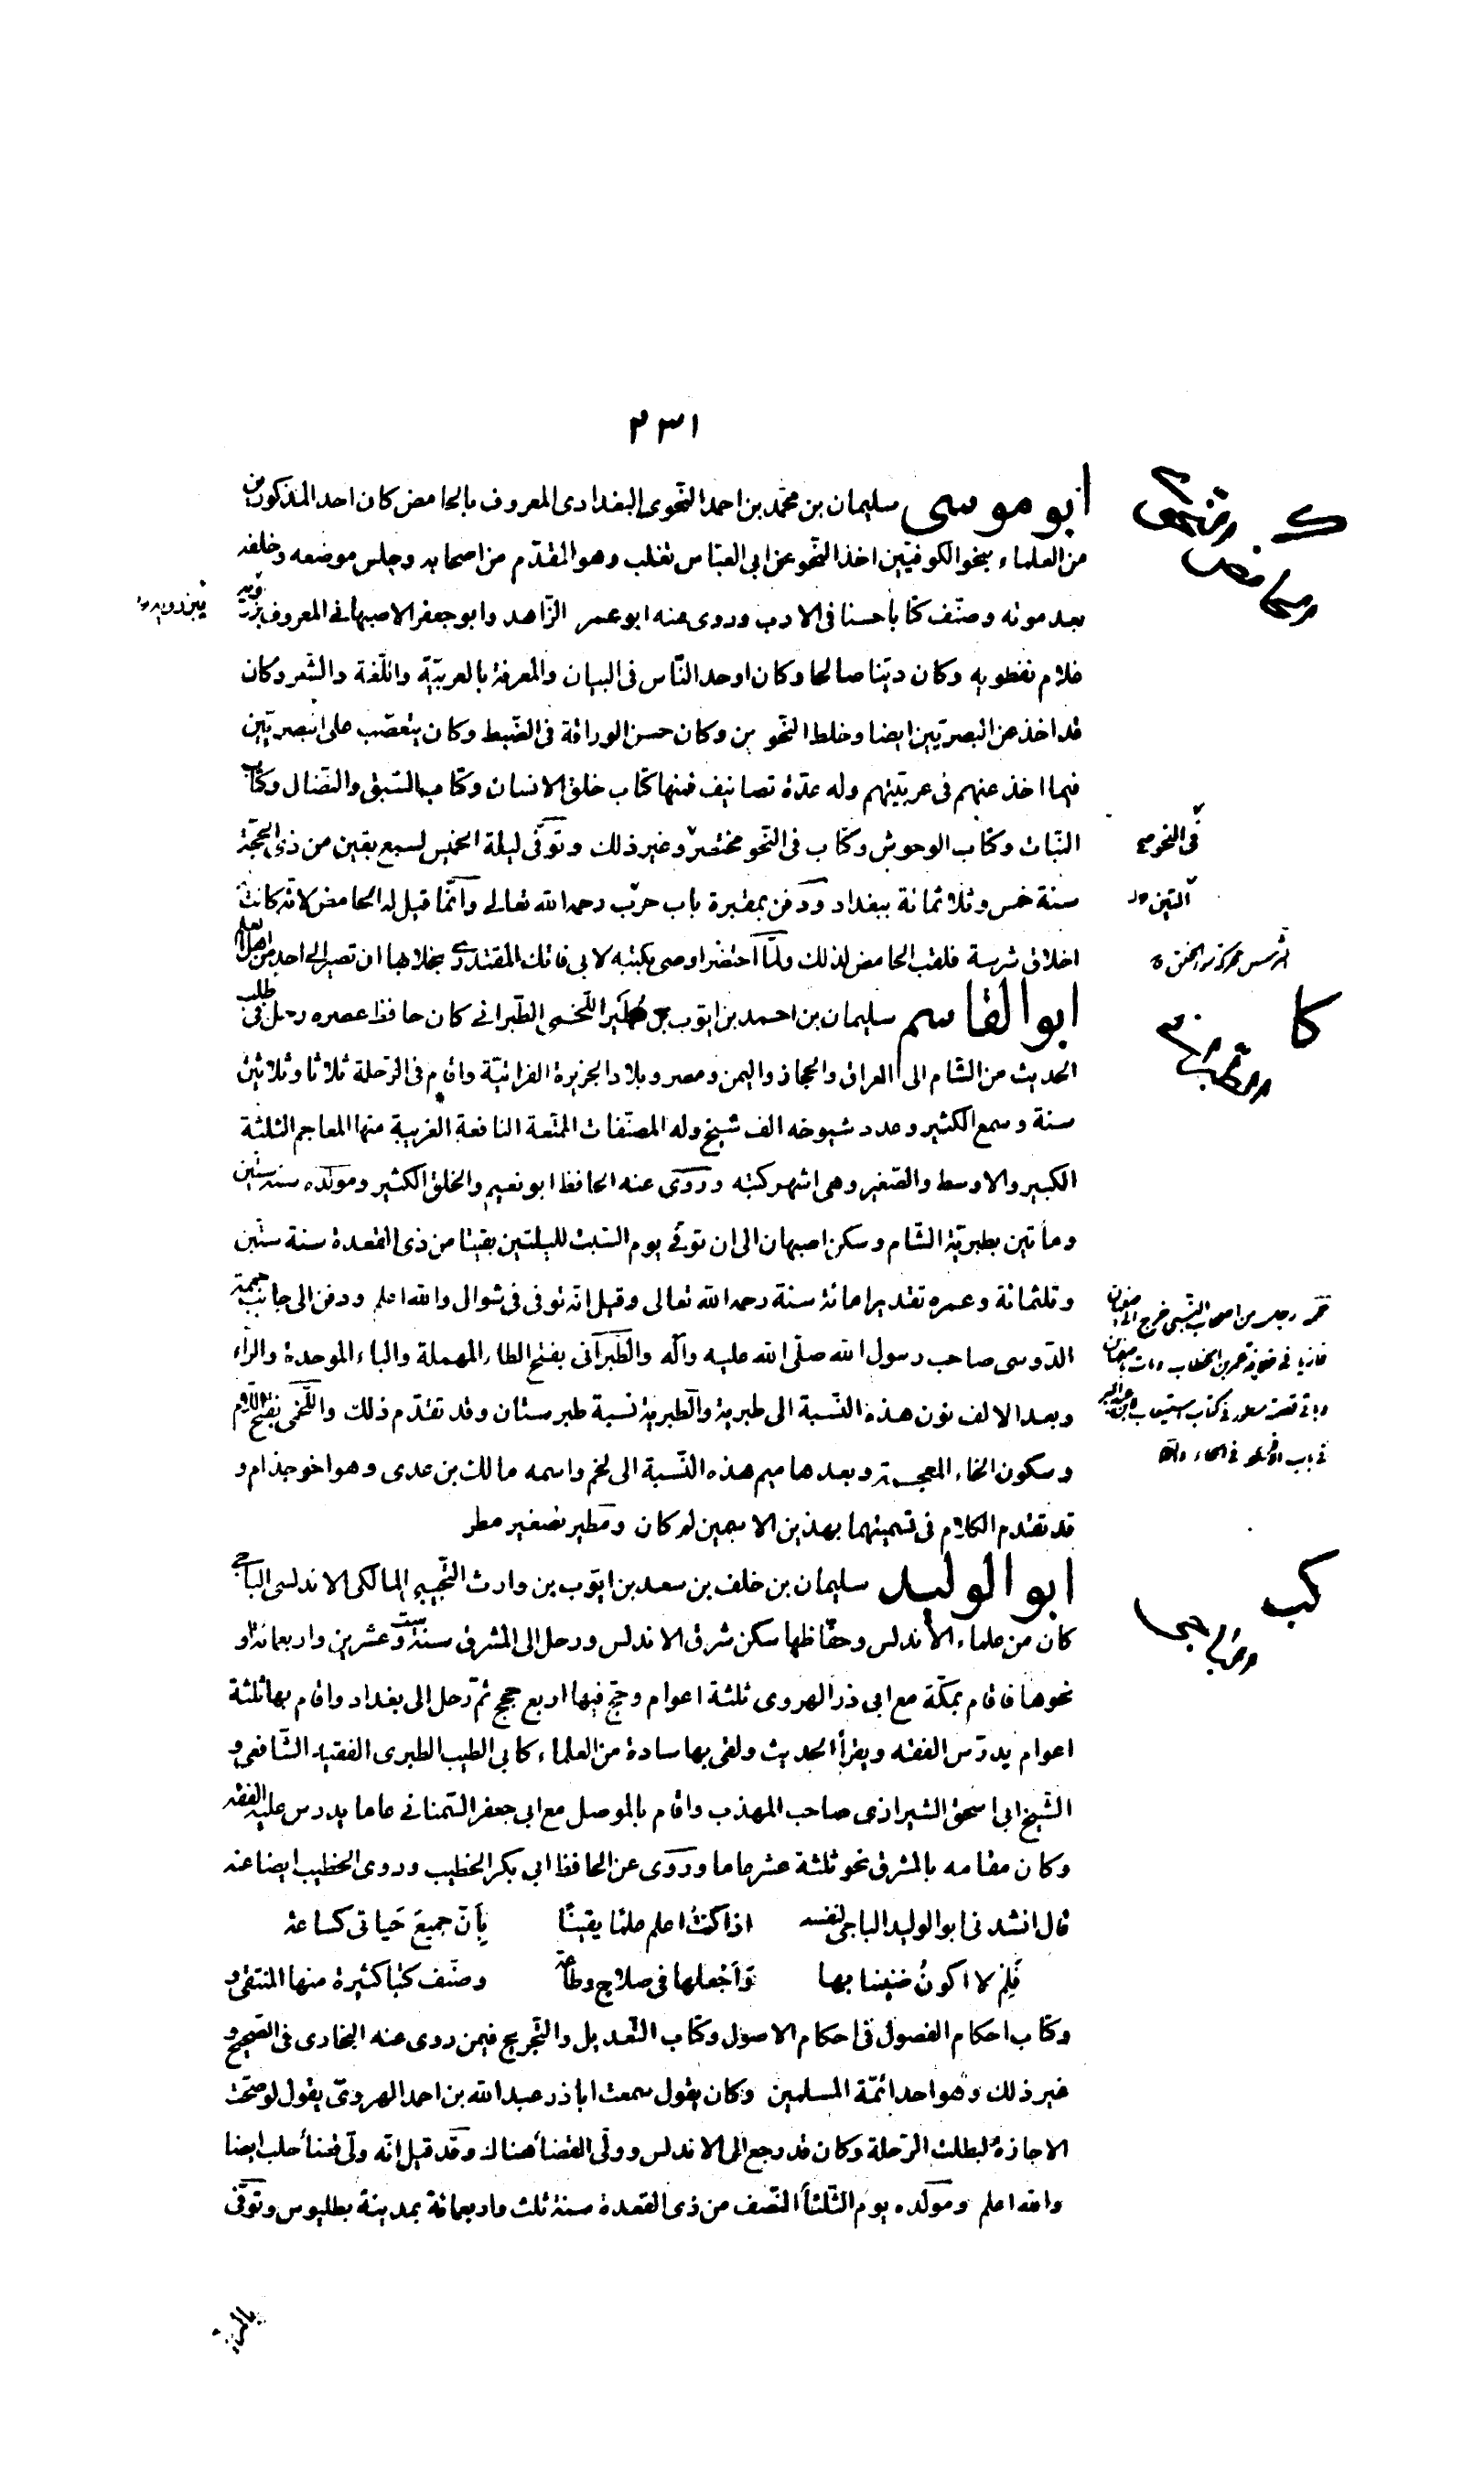 ٢٣١
ابو موسى سليمان بن محمّد بن احمد النّحوى البغدادى المعروف بالحامض كان احد المذكورين
من العلماء بنحو الكوفيّين اخذ النّحو عن ابى العبّاس ثعلب وهو المقدّم من اصحابه وجلس موضعه وخلفه
بعد موته وصنّف كتابا حسنا فى الادب وروى عنه ابو عمر الزّاهد وابو جعفر الاصبهانى المعروف
غلام نفطويه وكان ديّنا صالحا وكان اوحد النّاس فى البيان والمعرفة بالعربيّة واللّغة والشّعر وكان
قد اخذ عن البصريّين ايضا وخلط النّحوين وكان حسن الوراقة فى الضّبط وكان يتعصّب على البصريّين
فيما اخذ عنهم فى عربيّتهم وله عدّة تصانيف فمنها كتاب خلق الانسان وكتاب السّبق والنّضال وكتاب
النّبات وكتاب الوحوش وكتاب فى النّحو مختصر وغير ذلك وتوفّى ليلة الخميس لسبع بقين من ذى الحجّة
سنة خمس وثلاثمائة ببغداد ودفن بمقبرة باب حرب رحمه الله تعالى وانّما قيل له الحامض لانّه كانت له
اخلاق شرسة فلقب الحامض لذلك ولمّا احتضر اوصى بكتبه لابى فاتك المقتدرى بخلا بها ان تصير الى احد من اهل العلم
ابو القاسم سليمان بن احمد بن ايّوب بن مطير اللّخمى الطّبرانى كان حافظ عصره رحل فى طلب
الحديث من الشّام الى العراق والحجاز واليمن ومصر وبلاد الجزيرة الفراتيّة واقام فى الرّحلة ثلاثا وثلاثين
سنة وسمع الكثير وعدد شيوخه الف شيخ وله المصنّفات الممتعة النافعة الغريبة منها المعاجم الثلثة
الكبير والاوسط والصّغير وهى اشهر كتبه وروى عنه الحافظ ابو نعيم والخلق الكثير ومولده سنة ستّين
ومأتين بطبريّة الشّام وسكن اصبهان الى ان توفّى يوم السّبت لليلتين بقيتا من ذى القعدة سنة ستّين
وثلثمائة وعمره تقديرا مائة سنة رحمه الله تعالى وقيل انّه توفى فى شوال والله اعلم ودفن الى جانب حممة
الدّوسى صاحب رسول الله صلّى الله عليه وآله والطّبرانى بفتح الطاء المهملة والباء الموحدة والرّاء
وبعد الالف نون هذه النّسبة الى طبرية والطبرية نسبة طبرستان وقد تقدّم ذلك واللّخمى بفتح اللّام
وسكون الخاء المعجمة وبعدها ميم هذه النّسبة الى لخم واسمه مالك بن عدى وهو اخو جذام و
قد تقدم الكلام فى تسميتهما بهذين الاسمين لم كان ومطير تصغير مطر
ابو الوليد سليمان بن خلف بن سعد بن ايّوب بن وارث التّجيبى المالكى الاندلسى الباجى
كان من علماء الأندلس وحفّاظها سكن شرق الاندلس ورحل الى المشرق سنة ست وعشرين واربعمائة او
نحوها فاقام بمكّة مع ابى ذر الهروى ثلثة اعوام وحجّ فيها اربع حجج ثمّ رحل الى بغداد واقام بها ثلثة
اعوام يدرّس الفقه ويقرأ الحديث ولقى بها سادة من العلماء كابى الطيب الطبرى الفقيه الشّافعى و
الشّيخ ابى اسحق الشيرازى صاحب المهذب واقام بالموصل مع ابى جعفر السّمنانى عاما يدرس عليه الفقه
وكان مقامه بالمشرق نحو ثلثة عشر عاما وروى عن الحافظ ابى بكر الخطيب وروى الخطيب ايضا عنه
قال انشدنى ابو الوليد الباجى لنفسه اذا كنت اعلم علما يقينًا بأنّ جميعَ حَياتى كساعة
فَلِمْ لا اكونُ ضنينا بها وَاَجعلها فى صلاح وطاعة وصنّف كتبا كثيرة منها المنتقى و
وكتاب احكام الفصول فى احكام الاصول وكتاب التّعديل والتّجريح فيمن روى عنه البخارى فى الصّحيح و
غير ذلك وهو احد ائمّة المسلمين وكان يقول سمعت اباذر عبد الله بن احمد الهروىّ يقول لو صحّت
الاجازة لبطلت الرّحلة وكان قد رجع الى الاندلس وولّى القضأ هناك وقد قيل انّه ولّى قضأ حلب ايضا
والله اعلم ومولده يوم الثّلثأ النّصف من ذى القعدة سنة ثلث واربعمائة بمدينة بطليوس وتوفّى
كا
والطبرانى
كب
والباجى